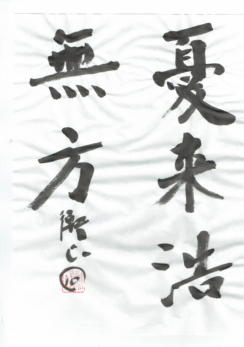 憂来浩
無方